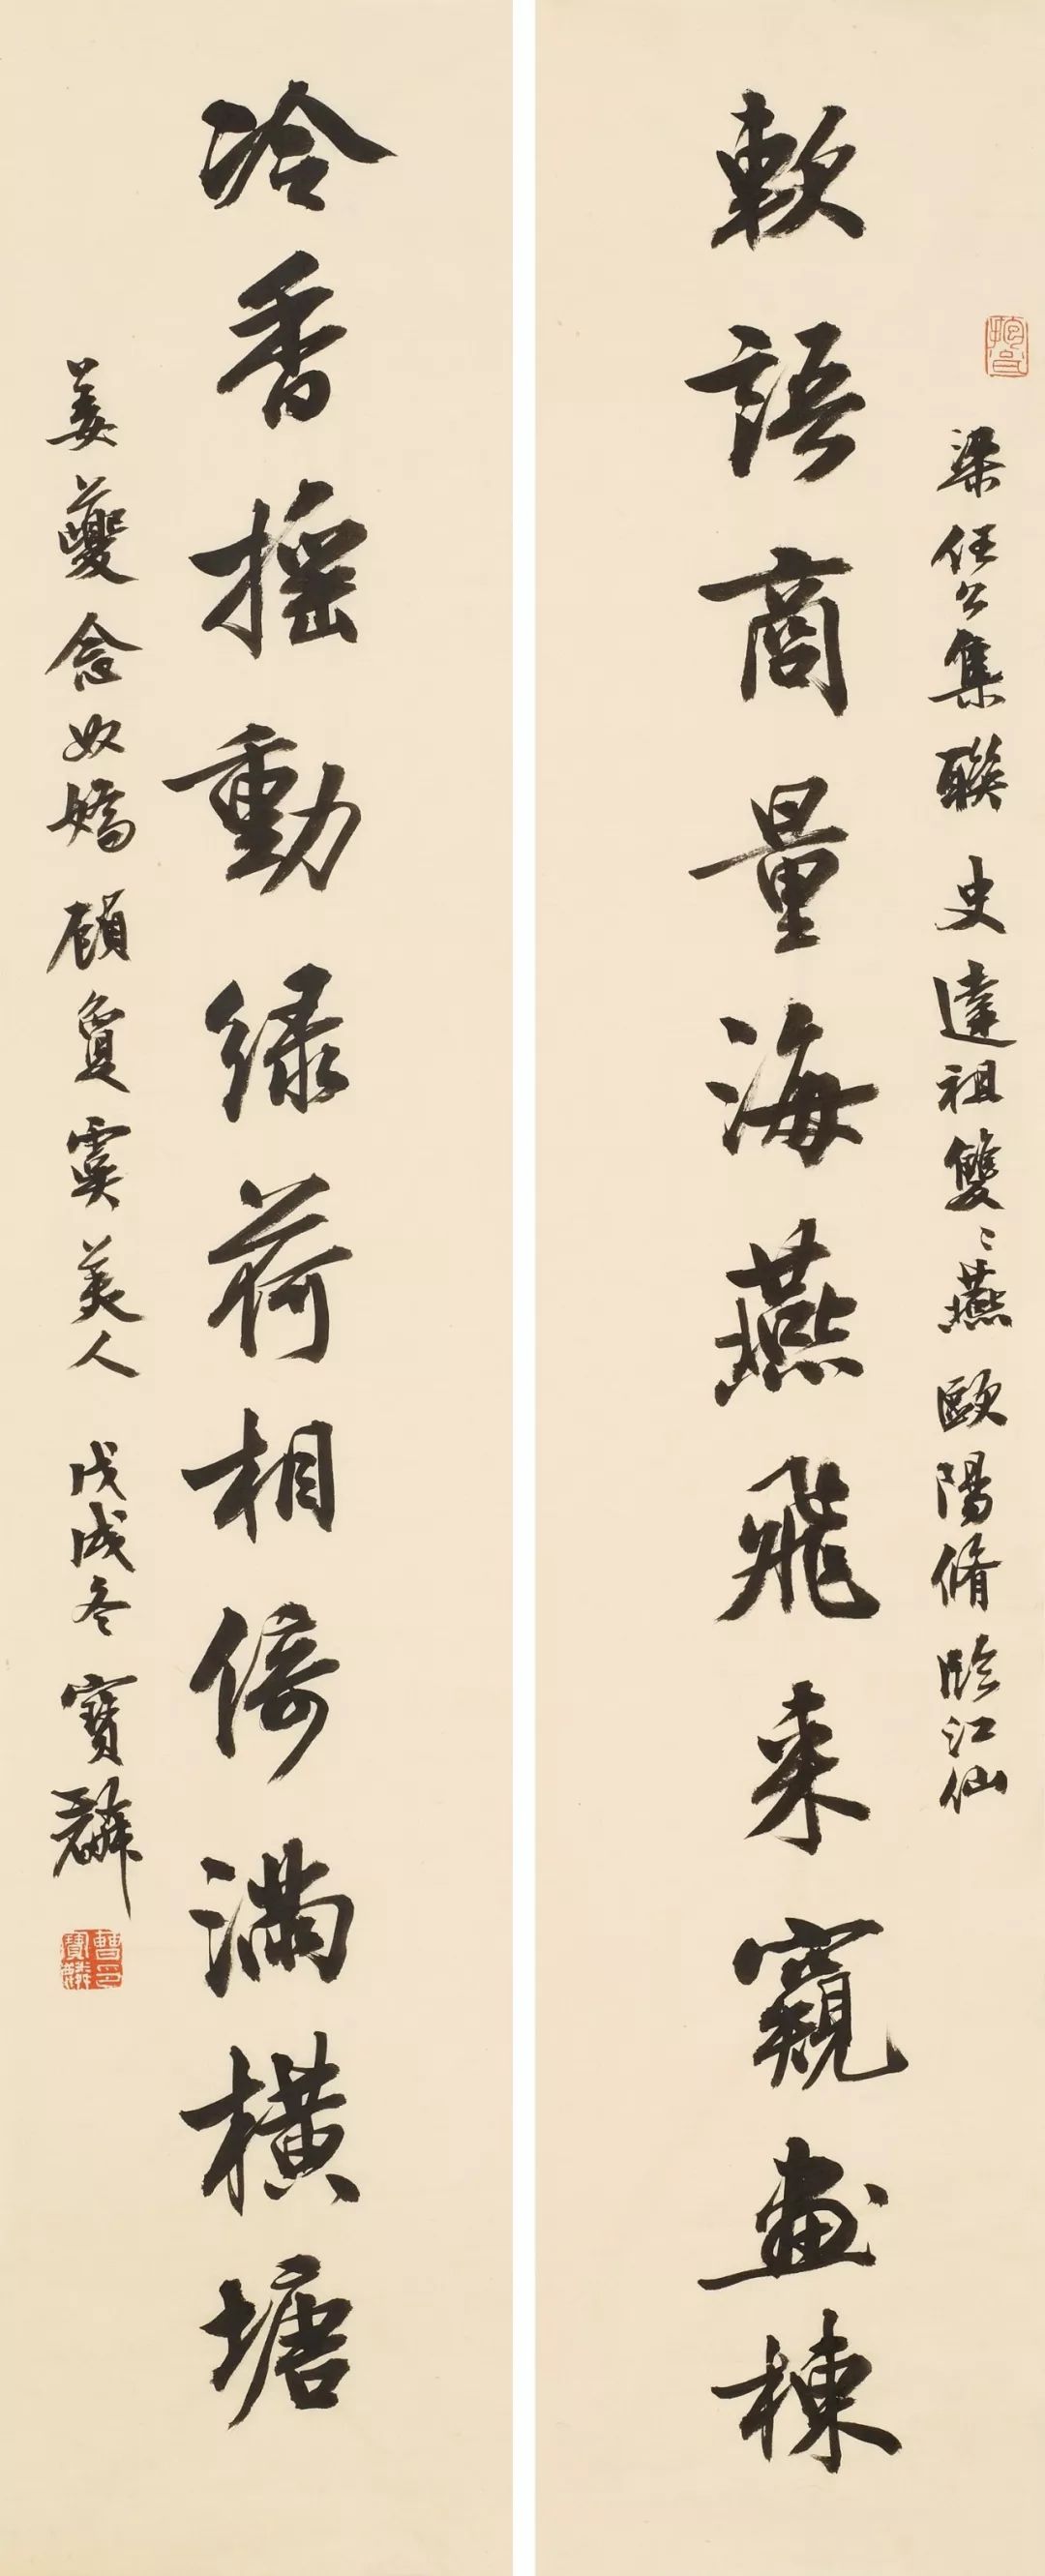 軟語商量海燕飛来窺畫棟
梁任公集聯 史達祖雙〻燕 歐陽脩臨江仙
冷香搖動緑荷相倚滿橫塘
姜夔念奴嬌 顧敻虞美人 戊戌冬 寶麟
曹寶麟印